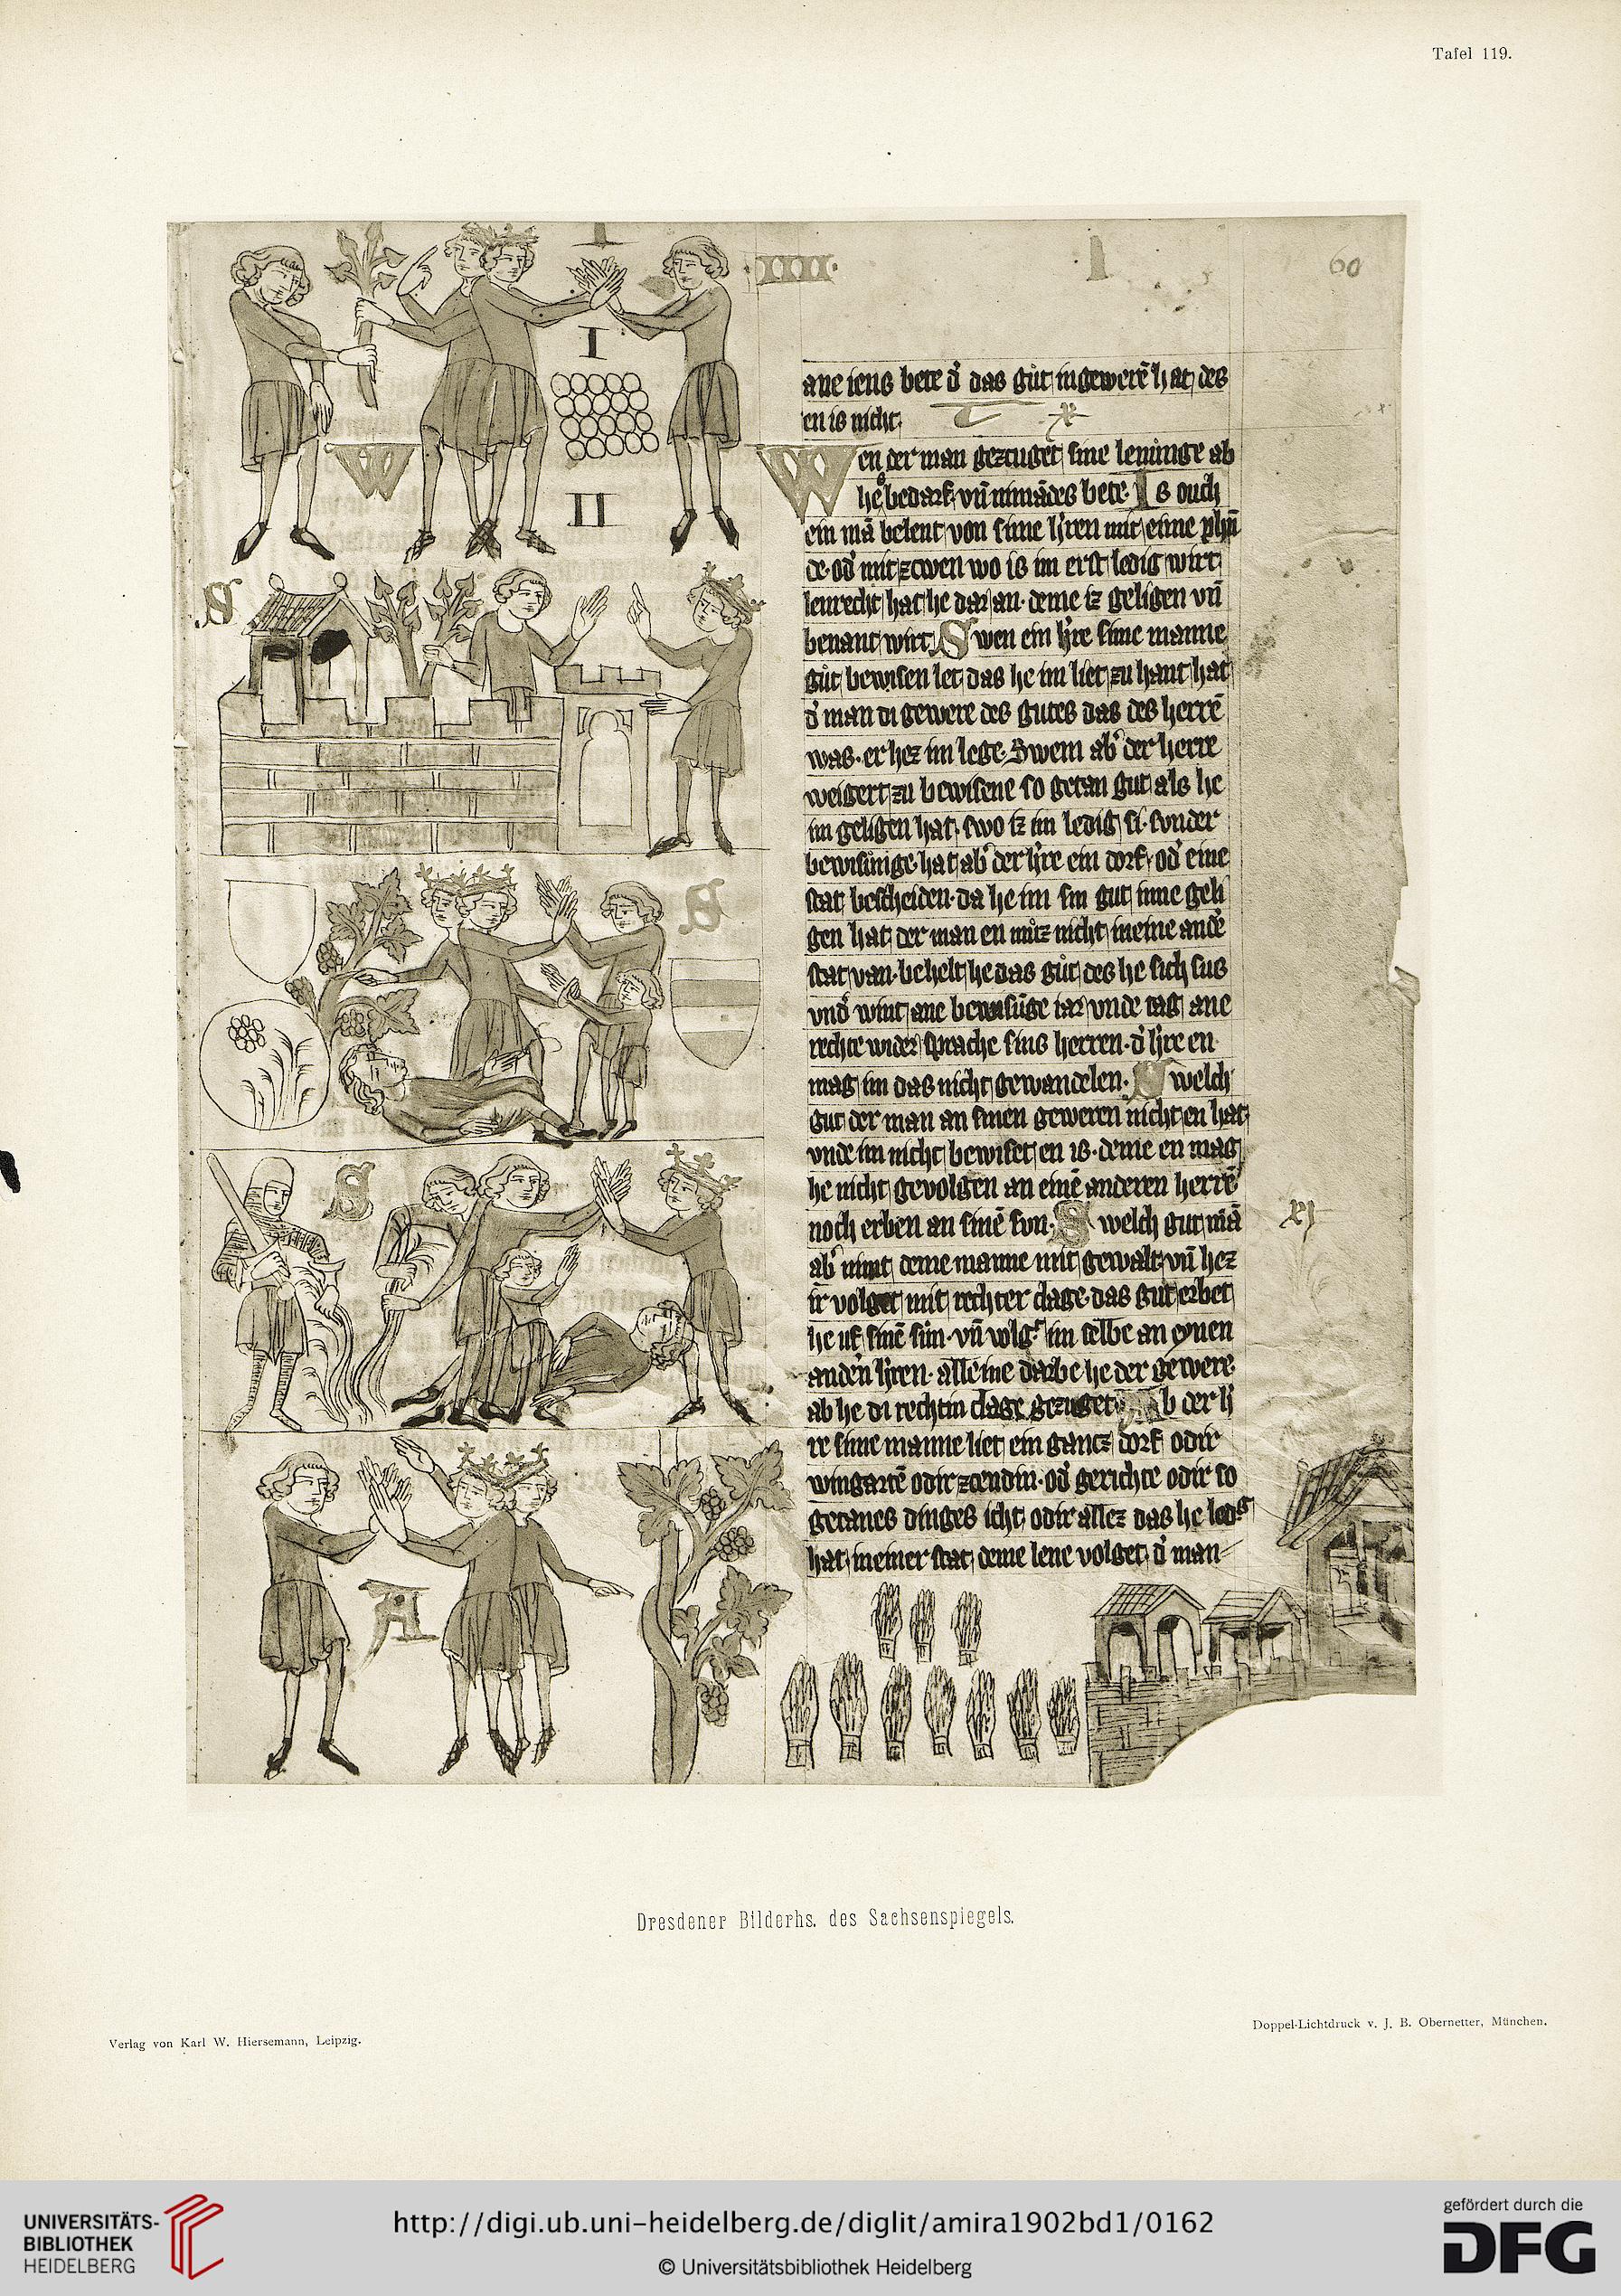 Tafel 119.
I
IIII.
I
60
I
II
W
S
S
S
A
ane iens bete d' das gut in gewere hat des
en is nicht.
x
Wen der man gezcuget sine lenunge ab
he bedarf vn nimādes bete. Is ouch
ein mā belent von sime h'ren mit eime phū
de od' mit zcwen wo is im erst ledig wirt
lenrecht hat he dar an. deme iz geligen vn
benant wirt. Swen ein h're sime manne
gut bewisen let das he im liet zu hant hat
d' man di gewere des gutes das des herrē
was. er hez im lege. Swem ab' der herre
weigert zu bewisene so getan gut als he
im geligen hat. swo iz im ledig si. sonder
bewisunge. hat ab' der h're ein dorf. od' eine
stat bescheiden. da he im sin gut inne geli
gen hat. der man en muz nicht in eine andˀe
stat van. behelt he das gut des he sich sus
vnd' wint ane bewisūge iar vnde tag ane
rechte wider sprache sins herren. d' h're en
mag im das nicht gewandelen. Swelch
gut der man an sinen geweren nicht en hat
vnde im nicht bewiset en is. deme en mag
he nicht gevolgen an einē anderen herrē
noch erben an sinē son. Swelch gut mā
xi
ab' nimt deme manne mit gewalt. vn hez
ir volget mit rechter clage. das gut erbet
he uf sinē sun. vn volg' im selbe an eynen
anden h'ren. alleine darbe he der gewere.
ab he di rechtin clage gezuget. Ab der h'
re sime manne liet ein gancz dorf odir
wingartē odir zcendin. od' gerichte odir so
getanes dinges icht odir allez das he ledg
hat in einer stat deme lene volget d' man
Dresdener Bilderhs. des Sachsenspiegels.
Verlag von Karl W. Hiersemann, Leipzig.
Doppel-Lichtdruck v. J. B. Obernetter, München.
UNIVERSITÄTS-
BIBLIOTHEK
HEIDELBERG
http://digi.ub.uni-heidelberg.de/diglit/amira1902bd1/0162
© Universitätsbibliothek Heidelberg
gefördert durch die
DFG